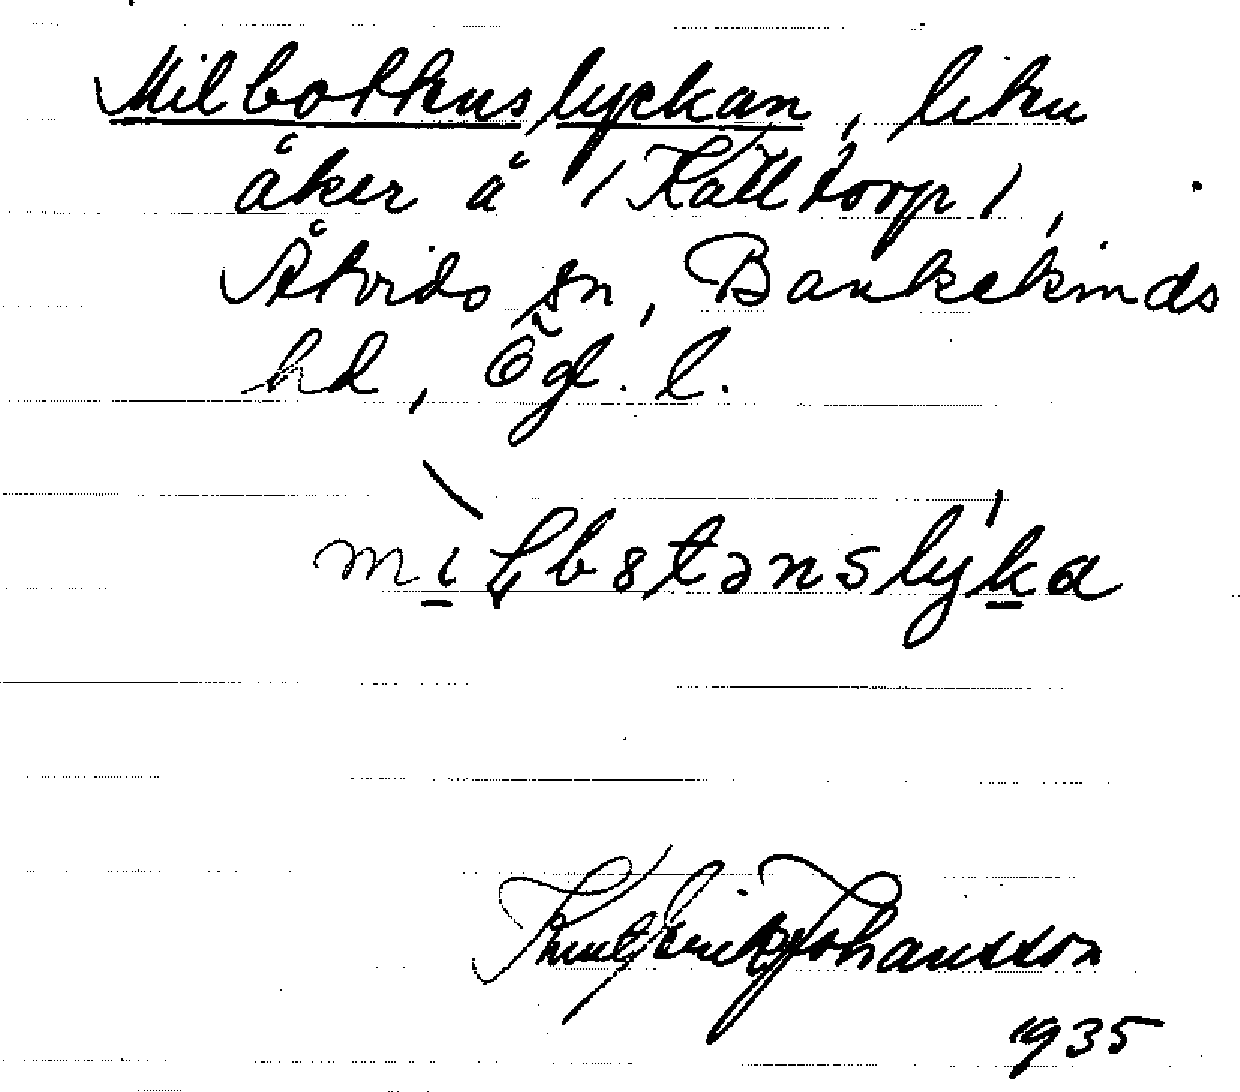 Milbottnslyckan, liten
åker å /Källtorp/,
Åtvids sn, Bankekinds
hd, Ögl. l.
Knut Erik Johansson
1935